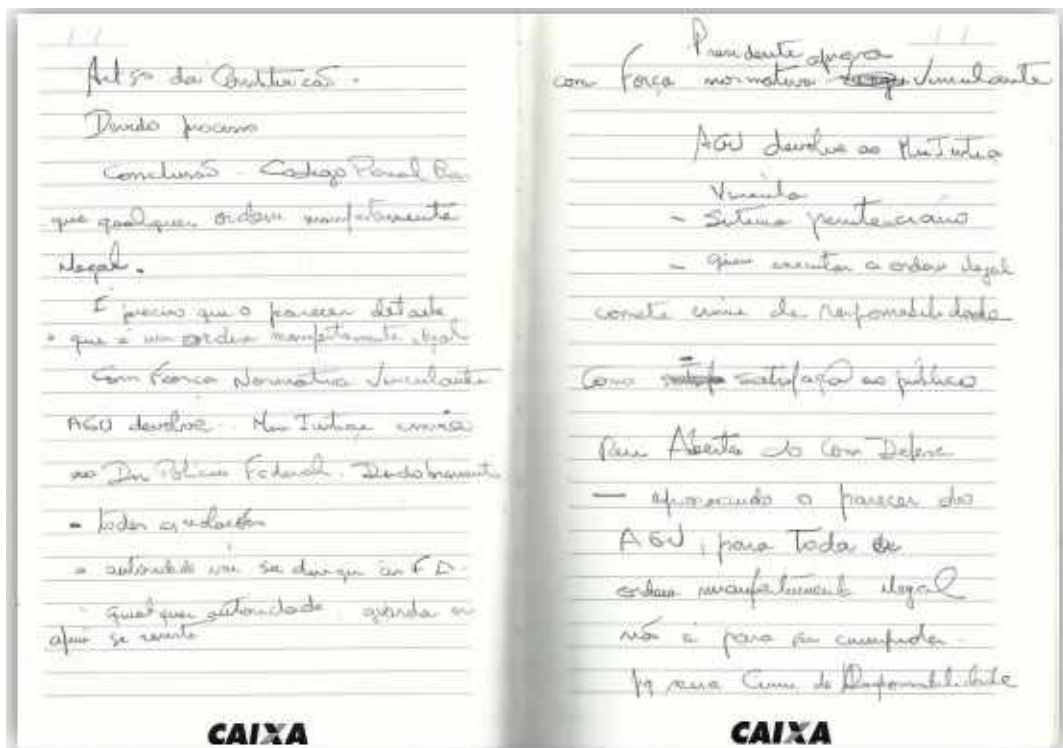 Art 5º da Constituição.
Devido processo
Conclusão - Codigo Penal
que qualquer ordem manifestamente
ilegal.
É preciso que o parecer detalhe
o que é um ordem manifestamente ilegal
Com Força Normativa Vinculante
AGU devolve - Min Justiça envia
ao Polícia Federal.
- todas
a autoridade vai se dirigir
qualquer autoridade
se
Presidente apoga
com Força normativa Vinculante
AGU devolve ao Min Justiça
Vincula
- Sistema penitenciário
- quem executar a ordem ilegal
comete crime de responsabilidade
Como satisfaçaõ ao público
Abertas do Com Defesa
— aprovando o parecer do
AGU, para Toda
ordem manifestamente ilegal
não é para ser cumprida.
pq seria Crime de Responsabilidade
CAIXA
CAIXA